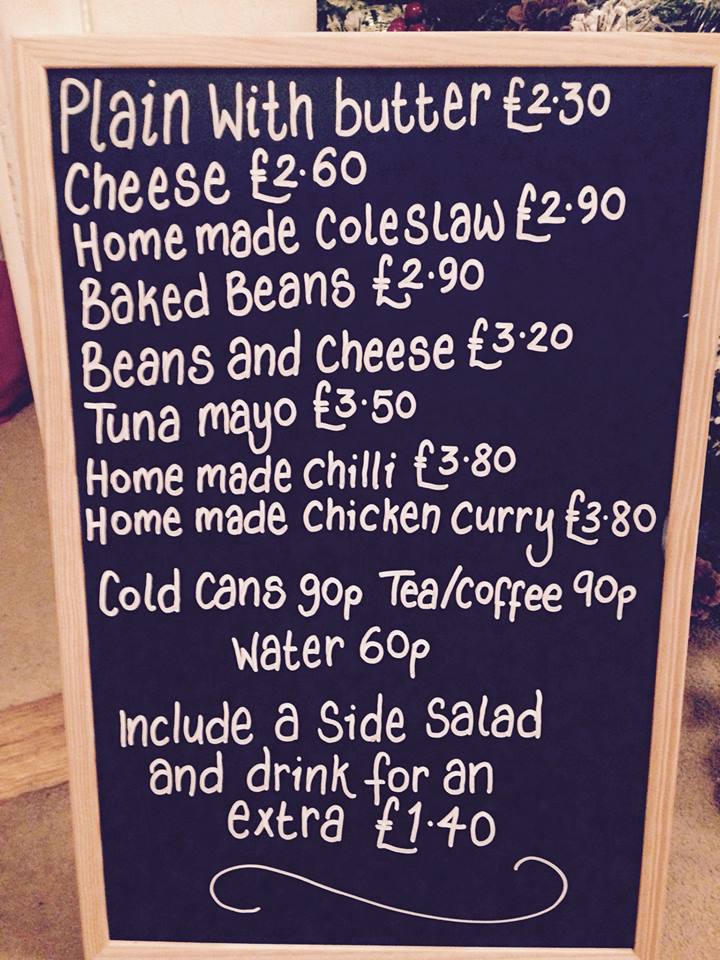 Plain With butter £2.30
Cheese £2.60
Home made Coleslaw £2.90
Baked Beans £2.90
Beans and Cheese £3.20
Tuna mayo £3.50
Home made Chilli £3.80
Home made Chicken Curry £3.80
Cold Cans 90p Tea/Coffee 90p
Water 60p
Include a Side Salad
and drink for an
extra £1.40